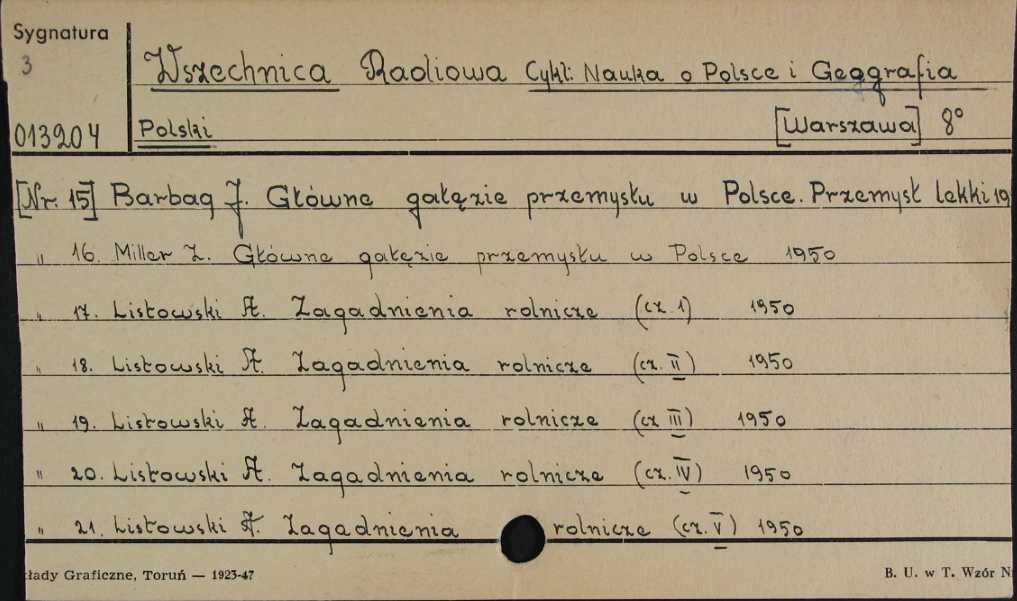 Sygnatura
3
013204
Wszechnica Radiowa Cykl: Nauka o Polsce i Geografia
Polski [Warszawa] 8°
[Nr. 15] Barbag J. Główne gałęzie przemysłu w Polsce. Przemysł lekki 19
„ 16. Miller Z. Główne gałęzie przemysłu w Polsce 1950
„ 17. Listowski A. Zagadnienia rolnicze (cz. 1) 1950
„ 18. Listowski A. Zagadnienia rolnicze (cz. II) 1950
„ 19. Listowski A. Zagadnienia rolnicze (cz III) 1950
„ 20. Listowski A. Zagadnienia rolnicze (cz. IV) 1950
„ 21. Listowski A. Zagadnienia rolnicze (cz. V) 1950
łady Graficzne, Toruń — 1923-47 B. U. w T. Wzór N